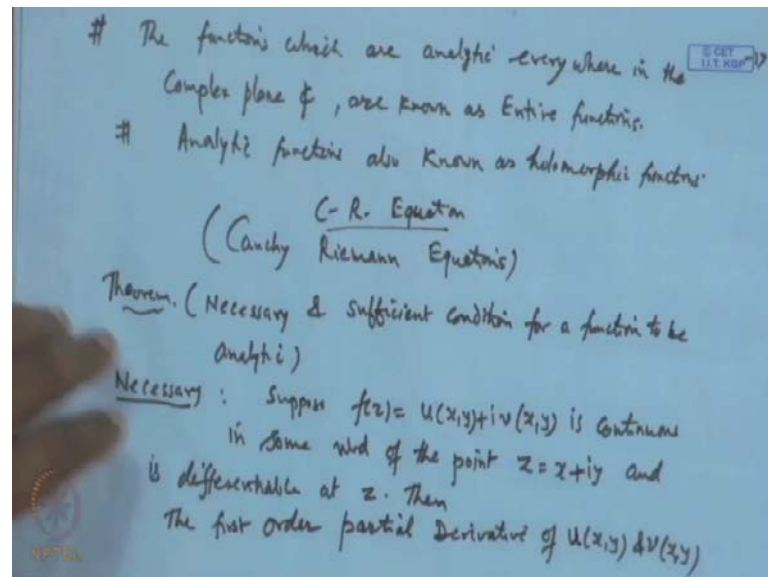 # The functions which are analytic everywhere in the
© CET
I.I.T. KGP
Complex plane ₵, are known as Entire functions.
# Analytic functions also known as holomorphic functions.
C-R. Equation
(Cauchy Riemann Equations)
Theorem. (Necessary & sufficient condition for a function to be
analytic)
Necessary : Suppose f(z) = u(x,y)+iv(x,y) is continuous
in some nbd of the point z = x+iy and
is differentiable at z. Then
The first order partial Derivative of u(x,y) & v(x,y)
NPTEL